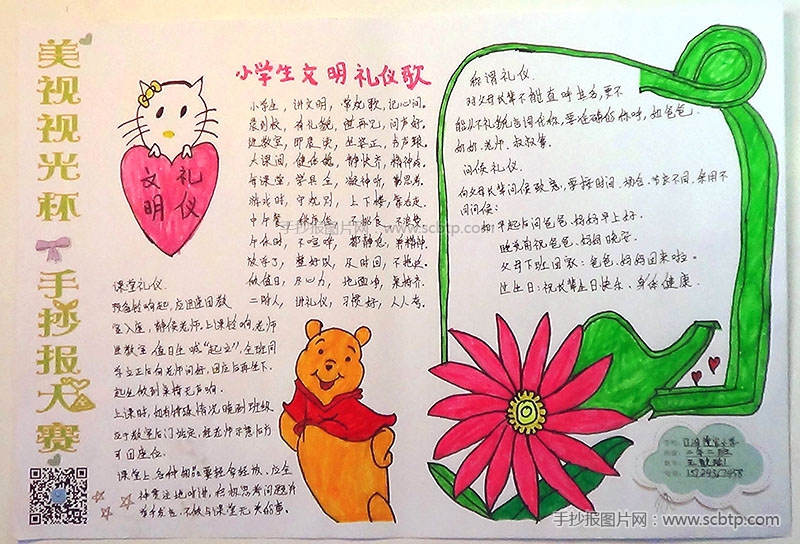 美视视光杯
手抄报大赛
小学生文明礼仪歌
文明
礼仪
小学生，讲文明，学规歌，记心间。
晨到校，有礼貌，问声好。
进教室，即晨读，书声琅。
大课间，静快齐，精神
有课堂，学具全，凝神听，勤思考。
游戏时，守规则，上下楼，靠右走。
中午餐，不挑食，不浪费。
午休时，不喧哗，都静息，养精神。
放学了，整好队，及时回，不拖延。
做值日，尽心力，地面净，桌椅齐。
二附人，讲礼仪，习惯好，人人夸。
课堂礼仪.
预备铃响起,应迅速回教
室入座，静候老师.上课铃响,老师
进教室,值日生喊“起立”,全班同
学立正后向老师问好，回应后再坐下.
起坐做到桌椅无声响.
上课时，如有特殊情况晚到班级
应于教室后门站定,经老师示意后方
可回座位.
课堂上,各种物品要轻拿轻放,应全
神贯注地听讲，积极思考问题并
举手发言.不做与课堂无关的事.
称谓礼仪.
对父母长辈不能直呼其名,更不
能以不礼貌言词代称,要准确的称呼,如爸爸.
奶奶.老师、叔叔等.
问候礼仪.
向父母长辈问候致意，要按时间、场合、节庆不同,采用不
同问候:
如:早起后问爸爸、妈妈早上好.
晚先前祝爸爸、妈妈晚安.
父母下班回家:爸爸、妈妈回来啦。
过生日:祝长辈生日快乐、身体健康.
二年二班
手抄报图片网：www.scbtp.com
手抄报图片网：www.scbtp.com